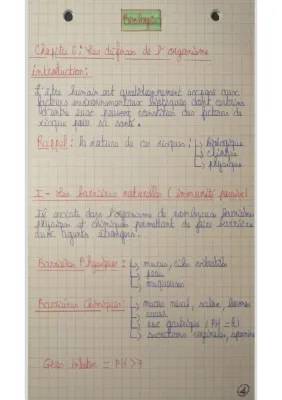 Biologie
Chapitre 6 : Les défenses de l'organisme
introduction :
L'être humain est quotidiennement exposé aux
facteurs environnementaux biotiques dont certains
d'entre eux peuvent constituer des facteurs de
risque pour sa santé.
Rappel : la nature de ces risques : → biologique
→ chimique
→ physique
I - Les barrières naturelles (immunité passive)
Il existe dans l'organisme de nombreuses barrières
physiques et chimiques permettant de faire barrière
aux agents étrangers.
Barrières Physiques : → mucus, cils
→ peau
→ muqueuses
Barrières Chimiques : → mucus nasal, salive, larmes
→ sueur
→ suc gastrique (PH =
→ secretions vaginales, sperme
= PH > 7